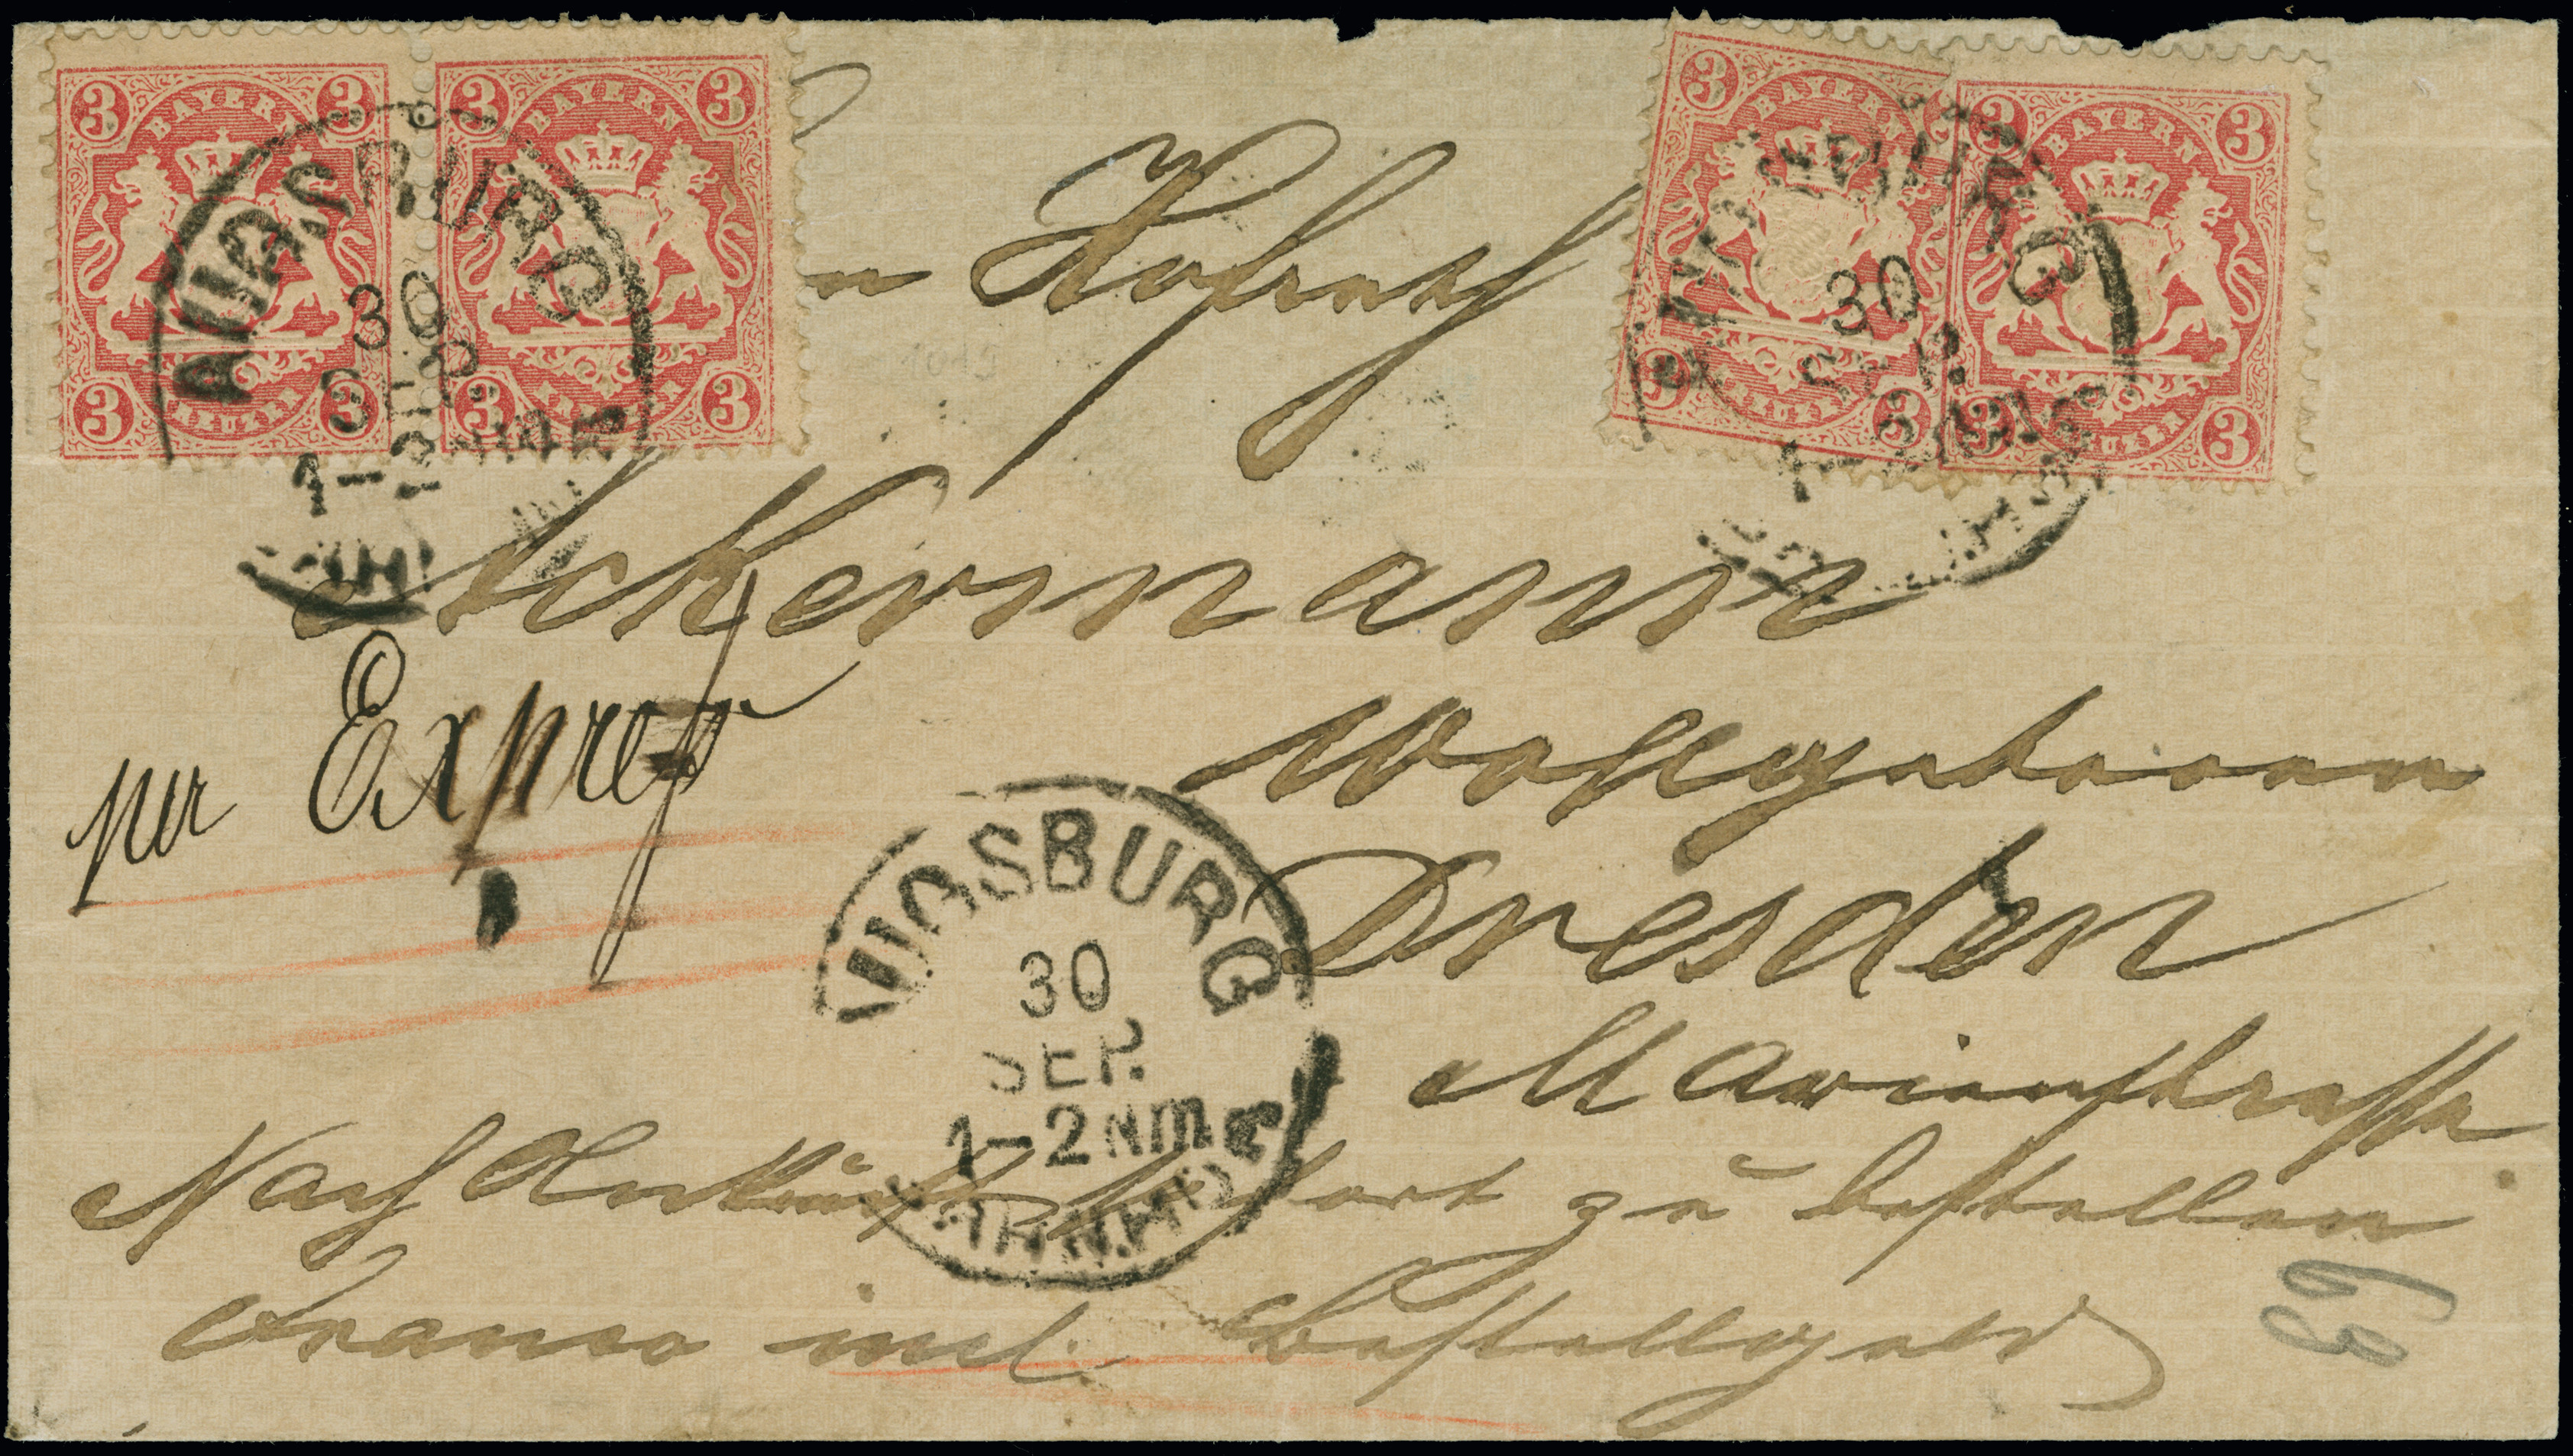 3 3 3 3
BAYERN BAYERN
KREUZER KREUZER
3 3 3 3
AUGSBURG
30
SEP
1-2
3 3 3 3
BAYERN BAYERN
KREUZER KREUZER
3 3 3 3
AUGSBURG
30
SEP.
1-2
n Hofrath
Ackermann
per Expreß
Wohlgeboren
Dresden
Marienstrasse
AUGSBURG
30
SEP.
1-2 NM
BAHNHOF
Nach Ankunft sofort zu bestellen
Franco incl. Bestellgeld